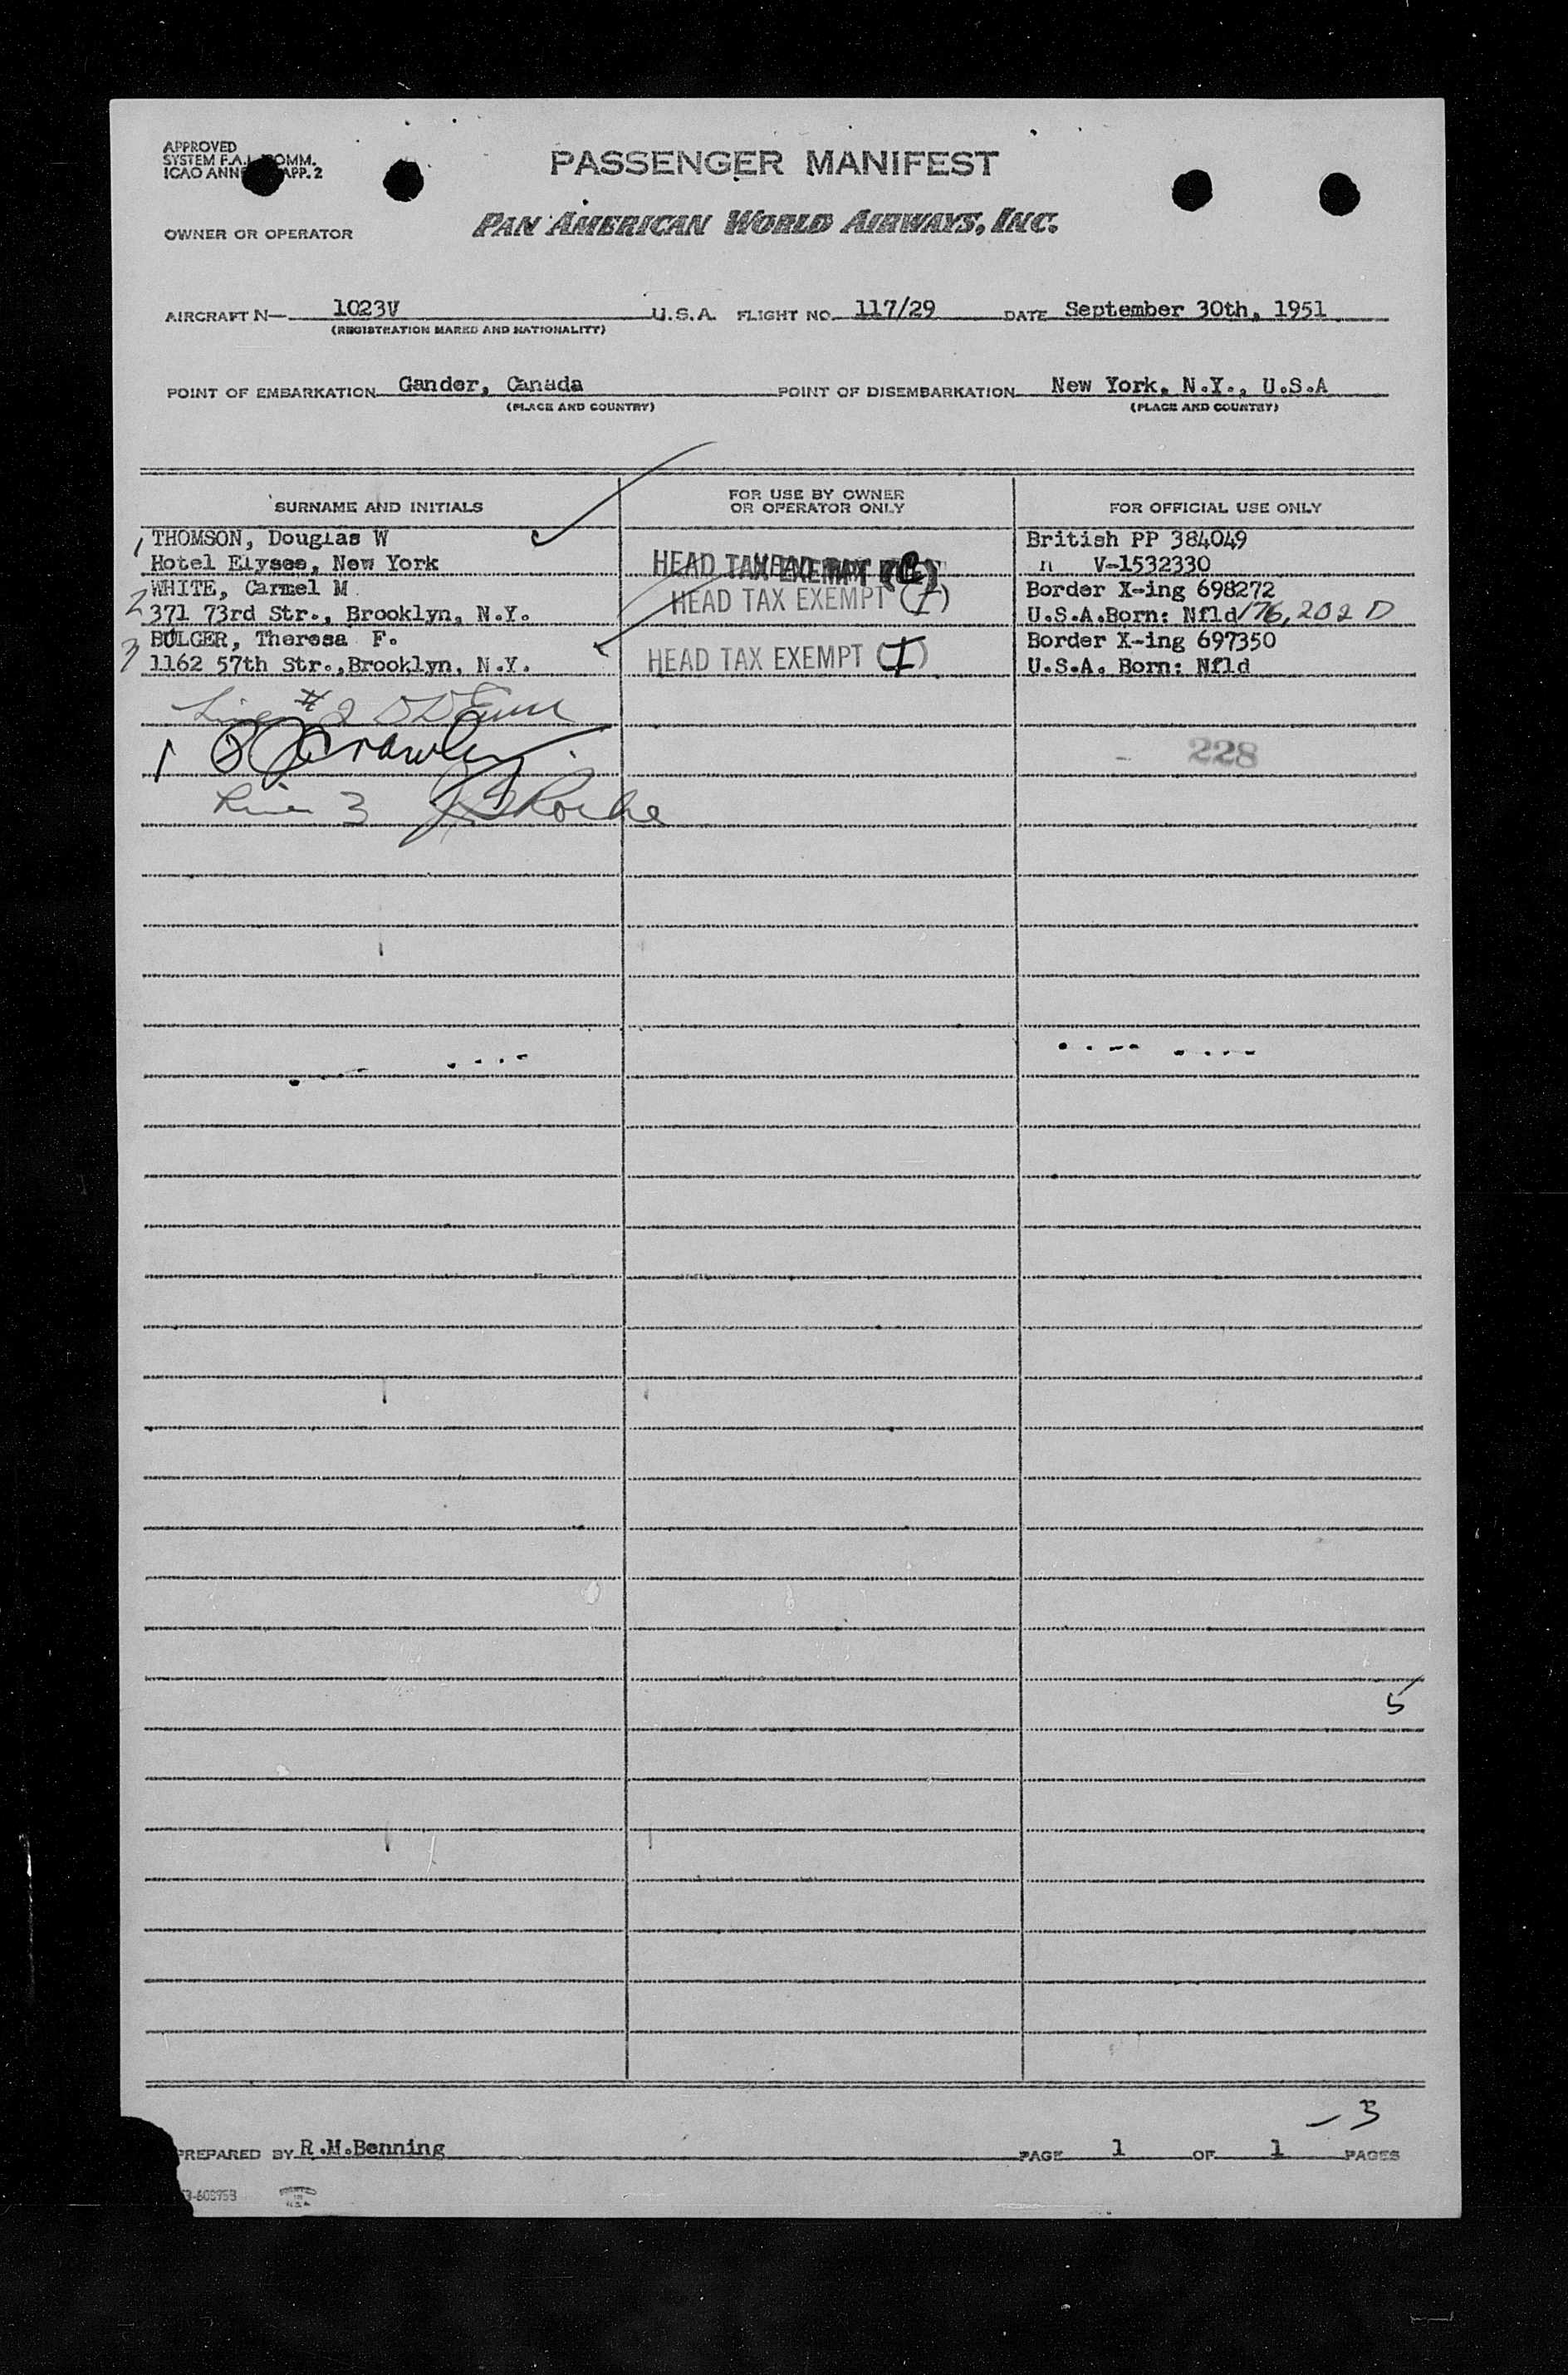 APPROVED
SYSTEM F.A.L. COMM.
ICAO APP. 2
PASSENGER MANIFEST
PAN AMERICAN WORLD AIRWAYS, INC.
OWNER OR OPERATOR
AIRCRAFT N— 1023V U.S.A. FLIGHT NO. 117/29 DATE September 30th, 1951
(REGISTRATION MARKS AND NATIONALITY)
POINT OF EMBARKATION Gander, Canada POINT OF DISEMBARKATION New York, N.Y., U.S.A
(PLACE AND COUNTRY) (PLACE AND COUNTRY)
SURNAME AND INITIALS FOR USE BY OWNER OR OPERATOR ONLY FOR OFFICIAL USE ONLY
1 THOMSON, Douglas W British PP 384049
Hotel Elysee, New York HEAD TAX EXEMPT " V-1532330
2 WHITE, Carmel M HEAD TAX EXEMPT (I) Border X-ing 698272
371 73rd Str., Brooklyn, N.Y. U.S.A.Born: Nfld 176,202 D
3 BULGER, Theresa F. Border X-ing 697350
1162 57th Str.,Brooklyn, N.Y. HEAD TAX EXEMPT (I) U.S.A. Born: Nfld
Line #2
1 Crawley 228
Line 3 Roche
5
3
PREPARED BY R.M.Benning PAGE 1 OF 1 PAGES
PRINTED IN U.S.A.